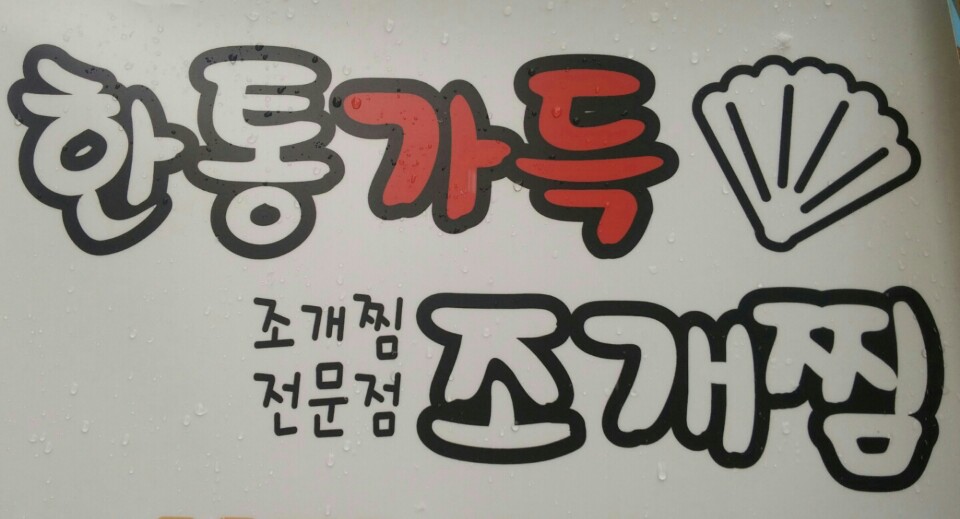 한통가득
조개찜
전문점
조개찜